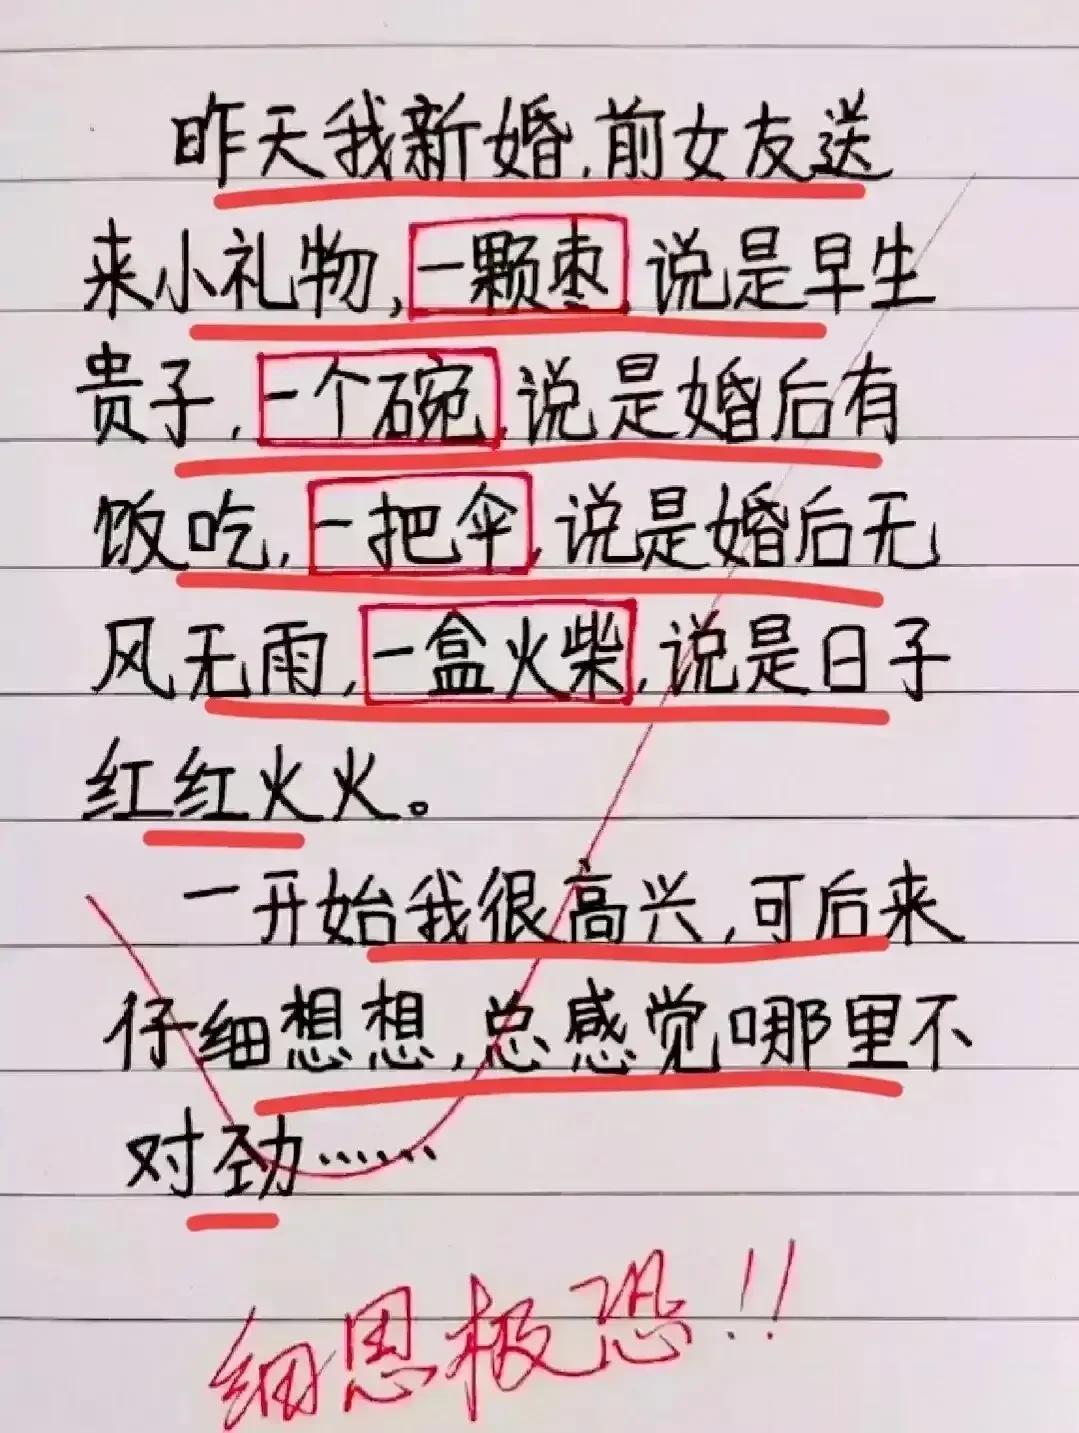 昨天我新婚,前女友送
来小礼物,一颗枣,说是早生
贵子,一个碗,说是婚后有
饭吃,一把伞,说是婚后无
风无雨,一盒火柴,说是日子
红红火火。
一开始我很高兴,可后来
仔细想想,总感觉哪里不
对劲……
细思极恐!!